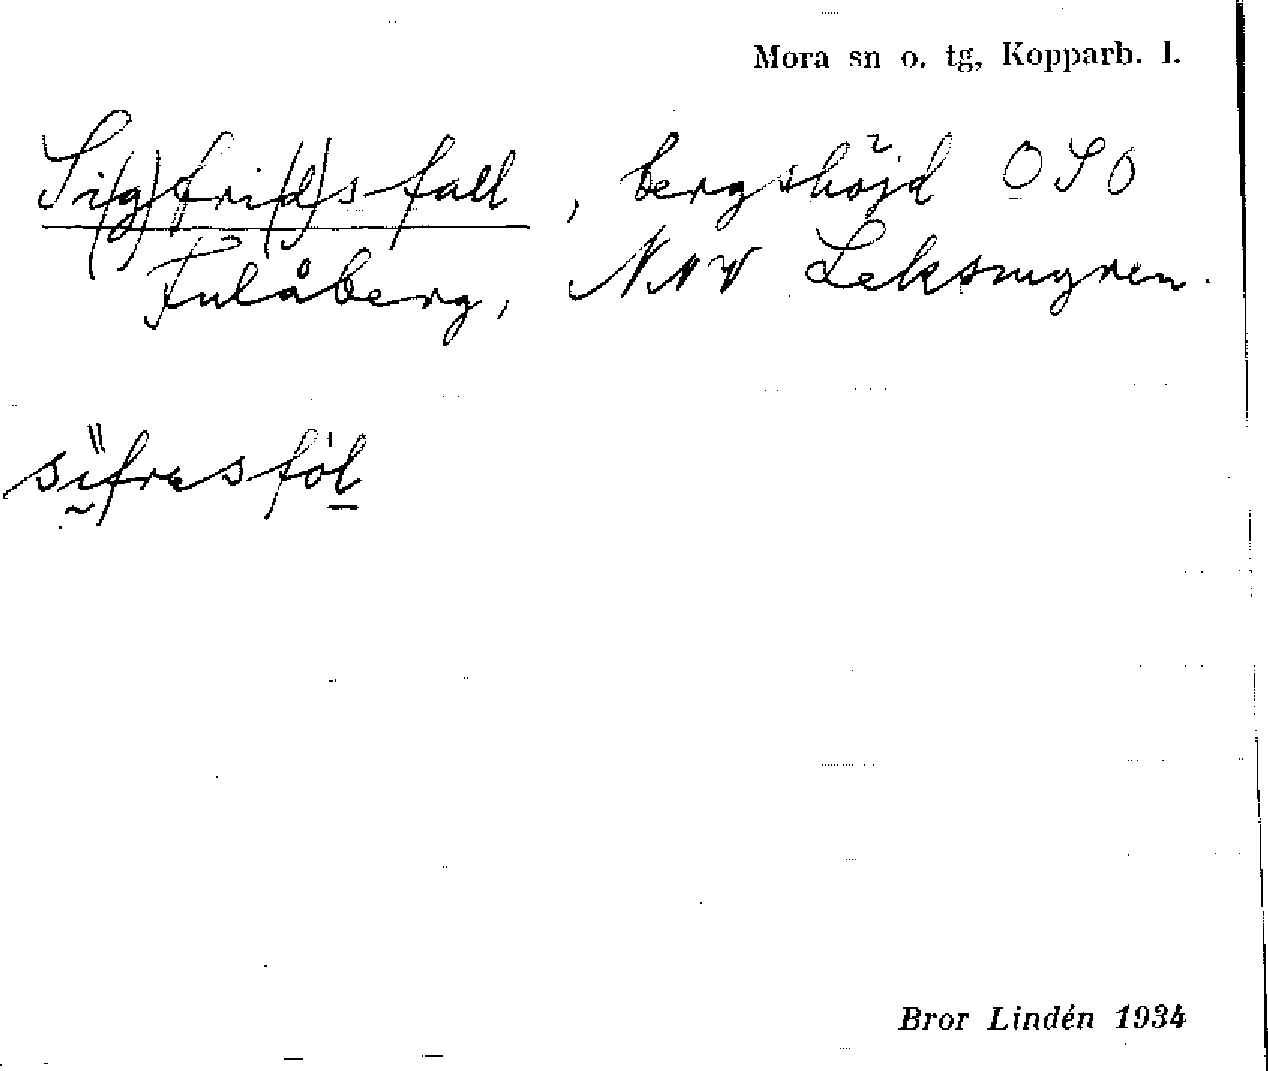 Mora sn o. tg, Kopparb. l.
Si(g)fri(d)sfall, bergshöjd OSO
Fulåberg, NNV Leksmyren.
sifrasföl
Bror Lindén 1934